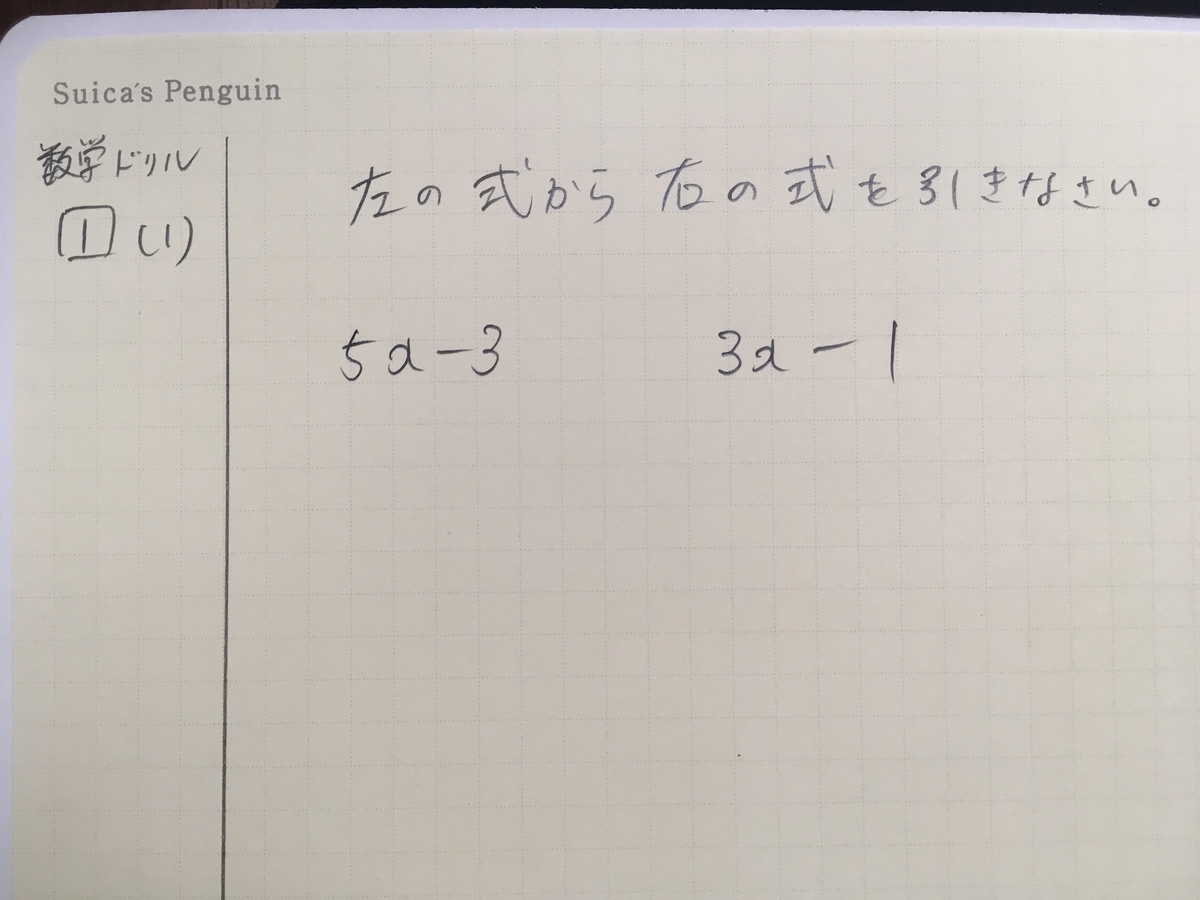 Suica's Penguin
数学ドリル
1 (1)
左の式から右の式を引きなさい。
5a-3 3a-1